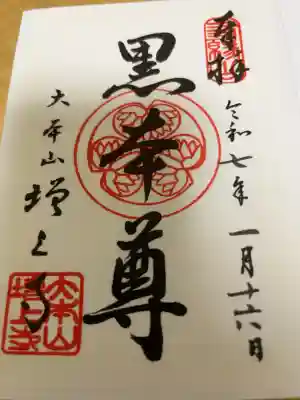 奉拝
令和七年 一月十六日
黒本尊
大本山 増上寺
大本山
増上寺